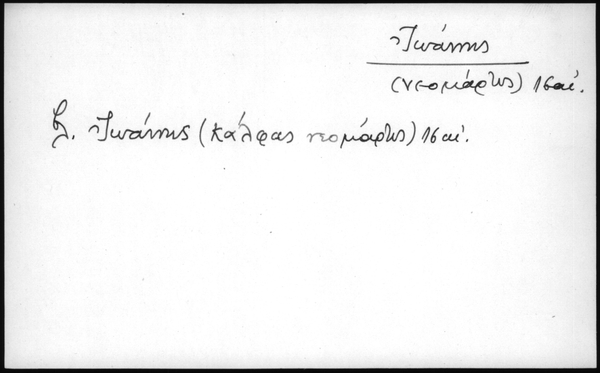 Ἰωάννης
(νεομάρτυς) 16 αἰ.
βλ. Ἰωάννης (κάλφας νεομάρτυς) 16 αἰ.